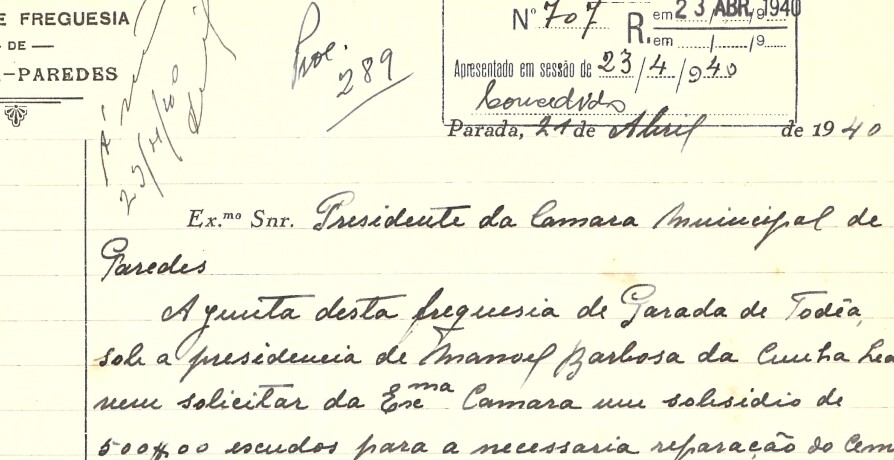 E FREGUESIA
DE
-PAREDES
Proc.
289
23/4/40
Nº 707
R. em 23 ABR. 1940
em / / 9
Apresentado em sessão de 23/4/940
Concedido
Parada, 21 de Abril de 1940
Ex.mo Snr. Presidente da Camara Municipal de
Paredes
A Junta desta freguesia de Parada de Todêa,
sob a presidencia de Manoel Barbosa da Cunha Lea
vem solicitar da Exma Camara um subsidio de
500$00 escudos para a necessaria reparação do Cem